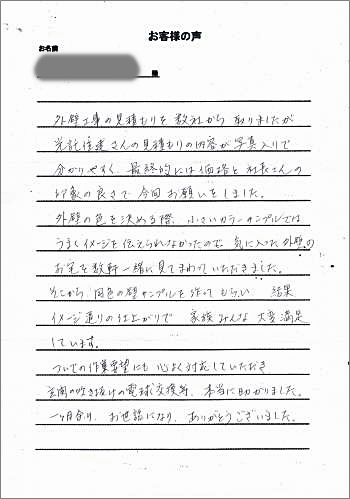 お客様の声
お名前
様
外壁工事の見積もりを数社から取りましたが
光託住建さんの見積もりの内容が写真入りで
分かりやすく、最終的には価格と社長さんの
印象の良さで今回お願いをしました。
外壁の色を決める際、小さいカラーサンプルでは
うまくイメージを伝えられなかったので、気に入った外壁の
お宅を数軒一緒に見てまわっていただきました。
そこから、同色の壁サンプルを作ってもらい、結果
イメージ通りの仕上がりで 家族みんな大変満足
しています。
ついでの作業要望にも心よく対応していただき
玄関の吹き抜けの電球交換等、本当に助かりました。
一ヶ月余り、お世話になり、ありがとうございました。